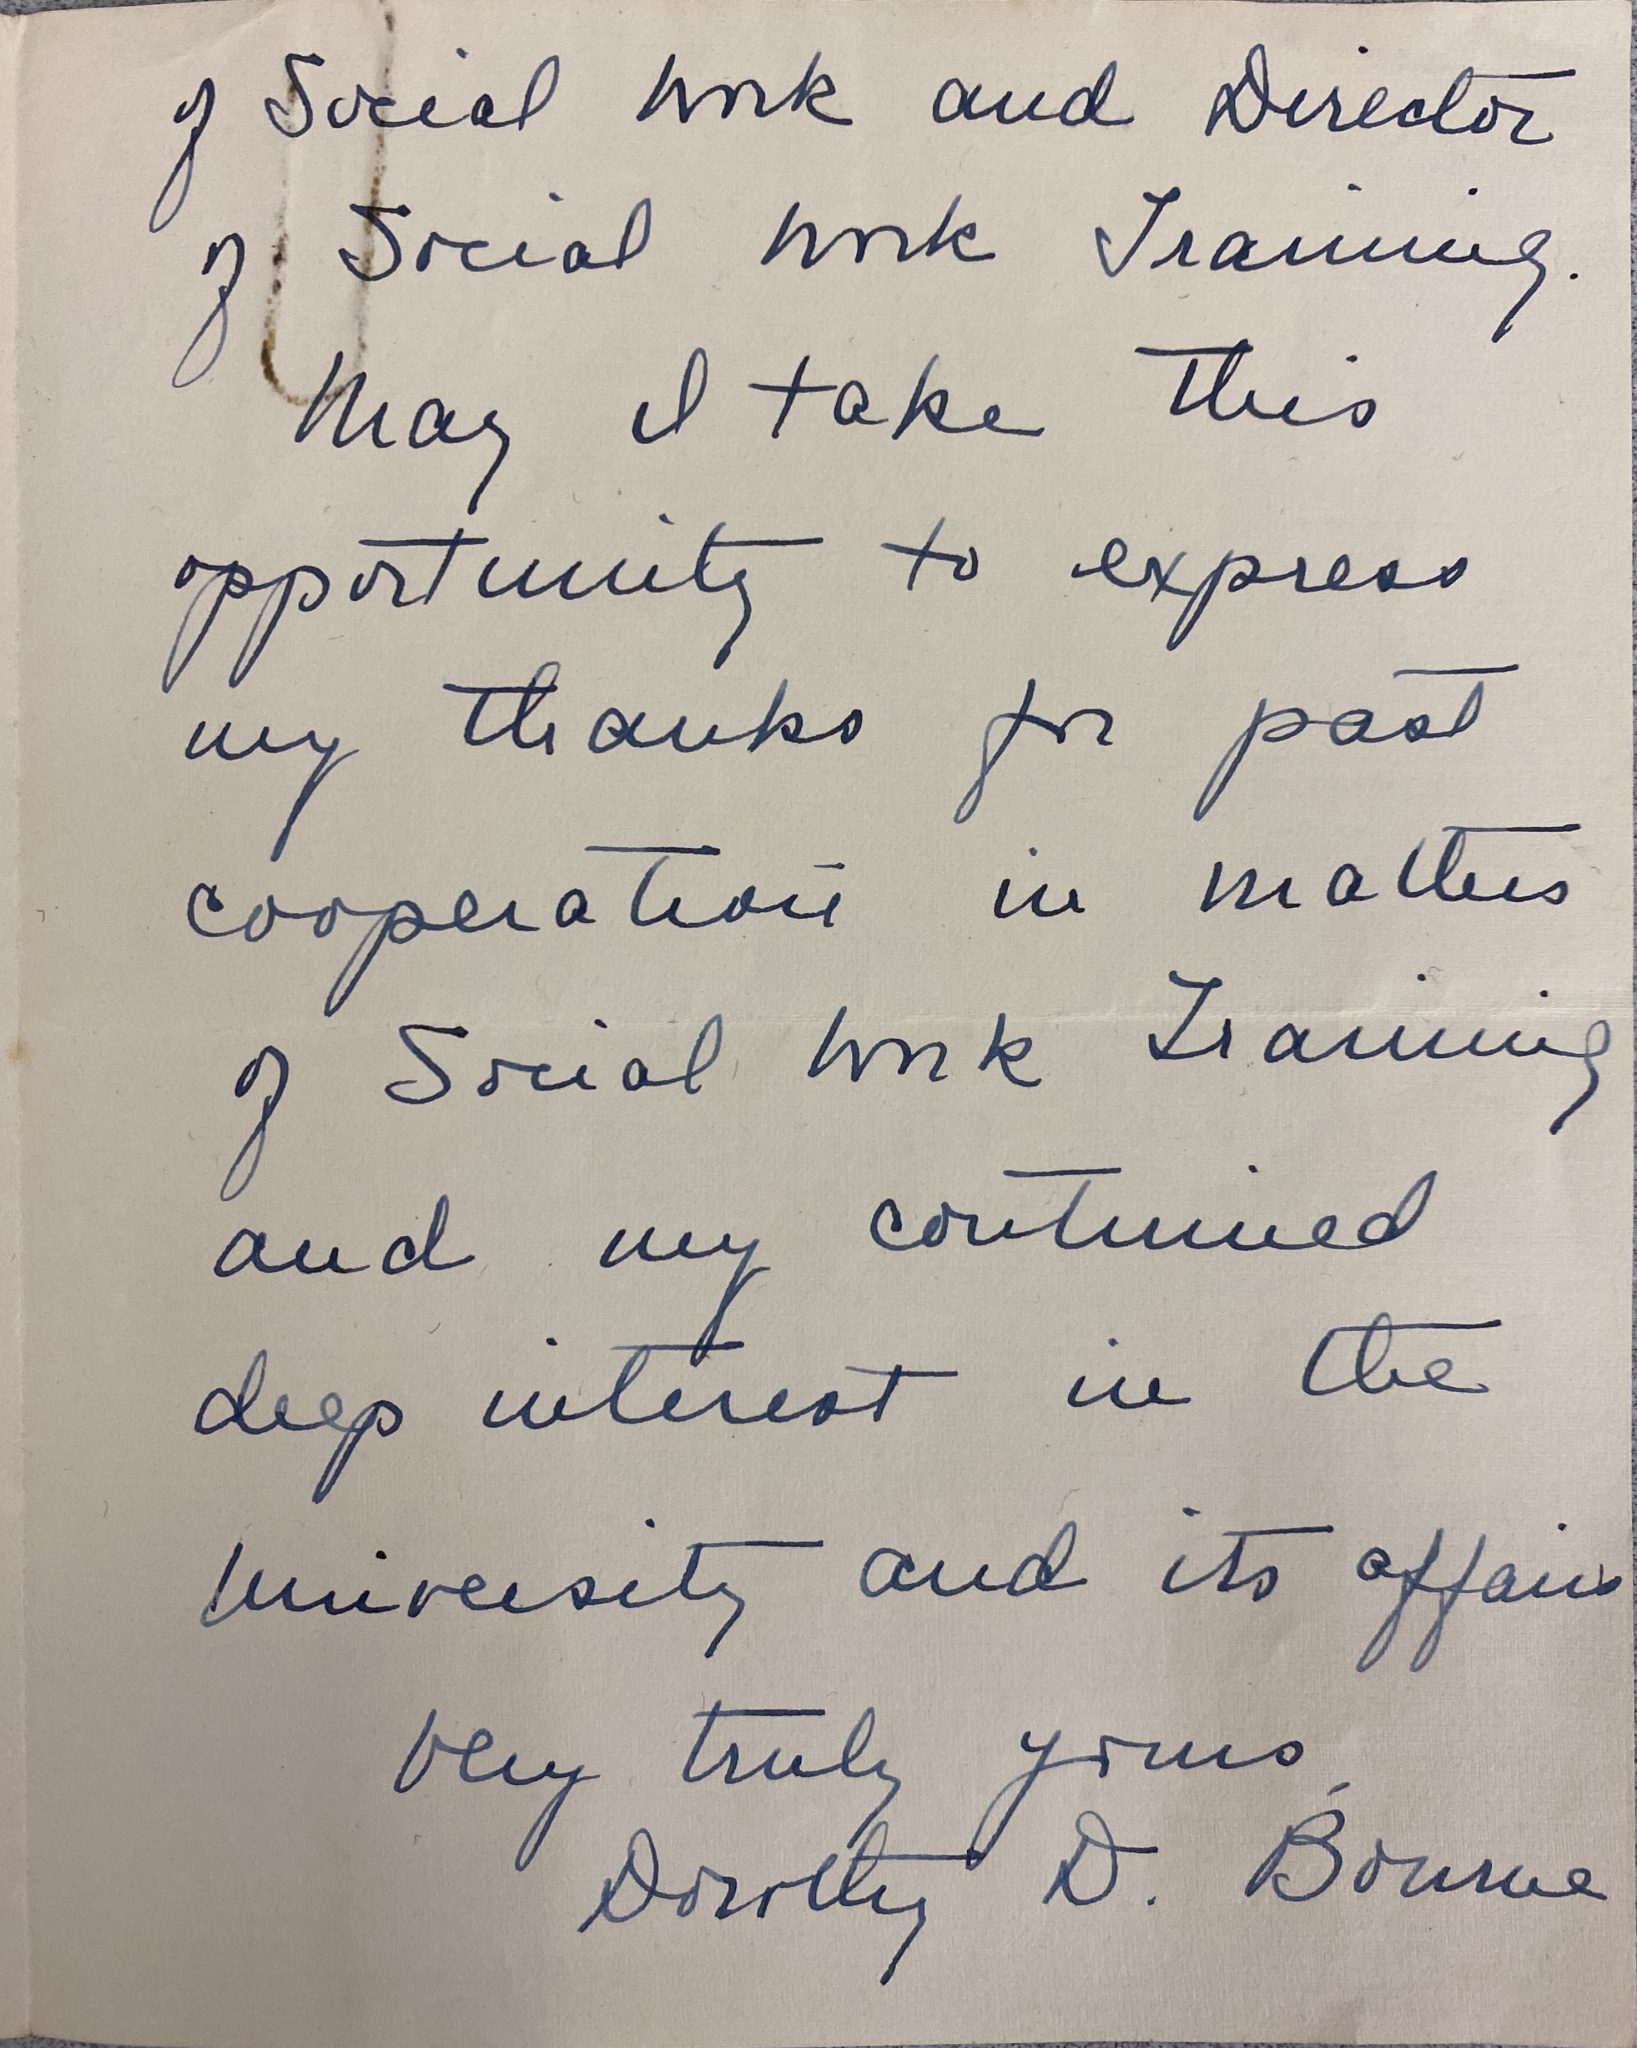 of Social Work and Director
of Social Work Training.
May I take this
opportunity to express
my thanks for past
cooperation in matters
of Social Work Training
and my continued
deep interest in the
University and its affairs
Very truly yours,
Dorothy D. Bourne